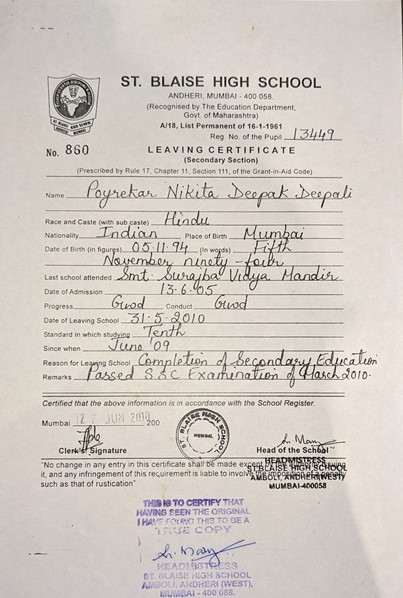 ST. BLAISE HIGH SCHOOL
ANDHERI, MUMBAI - 400 058.
(Recognised by The Education Department,
Govt. of Maharashtra)
A/18, List Permanent of 16-1-1961
Reg. No. of the Pupil 13449
No. 860
LEAVING CERTIFICATE
(Secondary Section)
(Prescribed by Rule 17, Chapter 11, Section 111, of the Grant-in-Aid Code)
Name Poyrekar Nikita Deepak Deepali
Race and Caste (with sub caste) Hindu
Nationality Indian Place of Birth Mumbai
Date of Birth (in figures) 05.11.94 (In words) Fifth
November ninety-four
Last school attended Smt. Surajba Vidya Mandir
Date of Admission 13.6.05
Progress Good Conduct Good
Date of Leaving School 31.5.2010
Standard in which studying Tenth
Since when June '09
Reason for Leaving School Completion of Secondary Education
Remarks Passed S.S.C Examination of March 2010.
Certified that the above information is in accordance with the School Register.
Mumbai JUN 2010 200
ST. BLAISE HIGH SCHOOL
MUMBAI
Clerk's Signature
Head of the School
HEADMISTRESS
ST.BLAISE HIGH SCHOOL
AMBOLI, ANDHERI(WEST)
MUMBAI-400058
"No change in any entry in this certificate shall be made except by the
it, and any infringement of this requirement is liable to involve the
such as that of rustication"
THIS IS TO CERTIFY THAT
HAVING SEEN THE ORIGINAL
I HAVE FOUND THIS TO BE A
TRUE COPY
HEADMISTRESS
ST. BLAISE HIGH SCHOOL
AMBOLI, ANDHERI (WEST),
MUMBAI - 400 058.